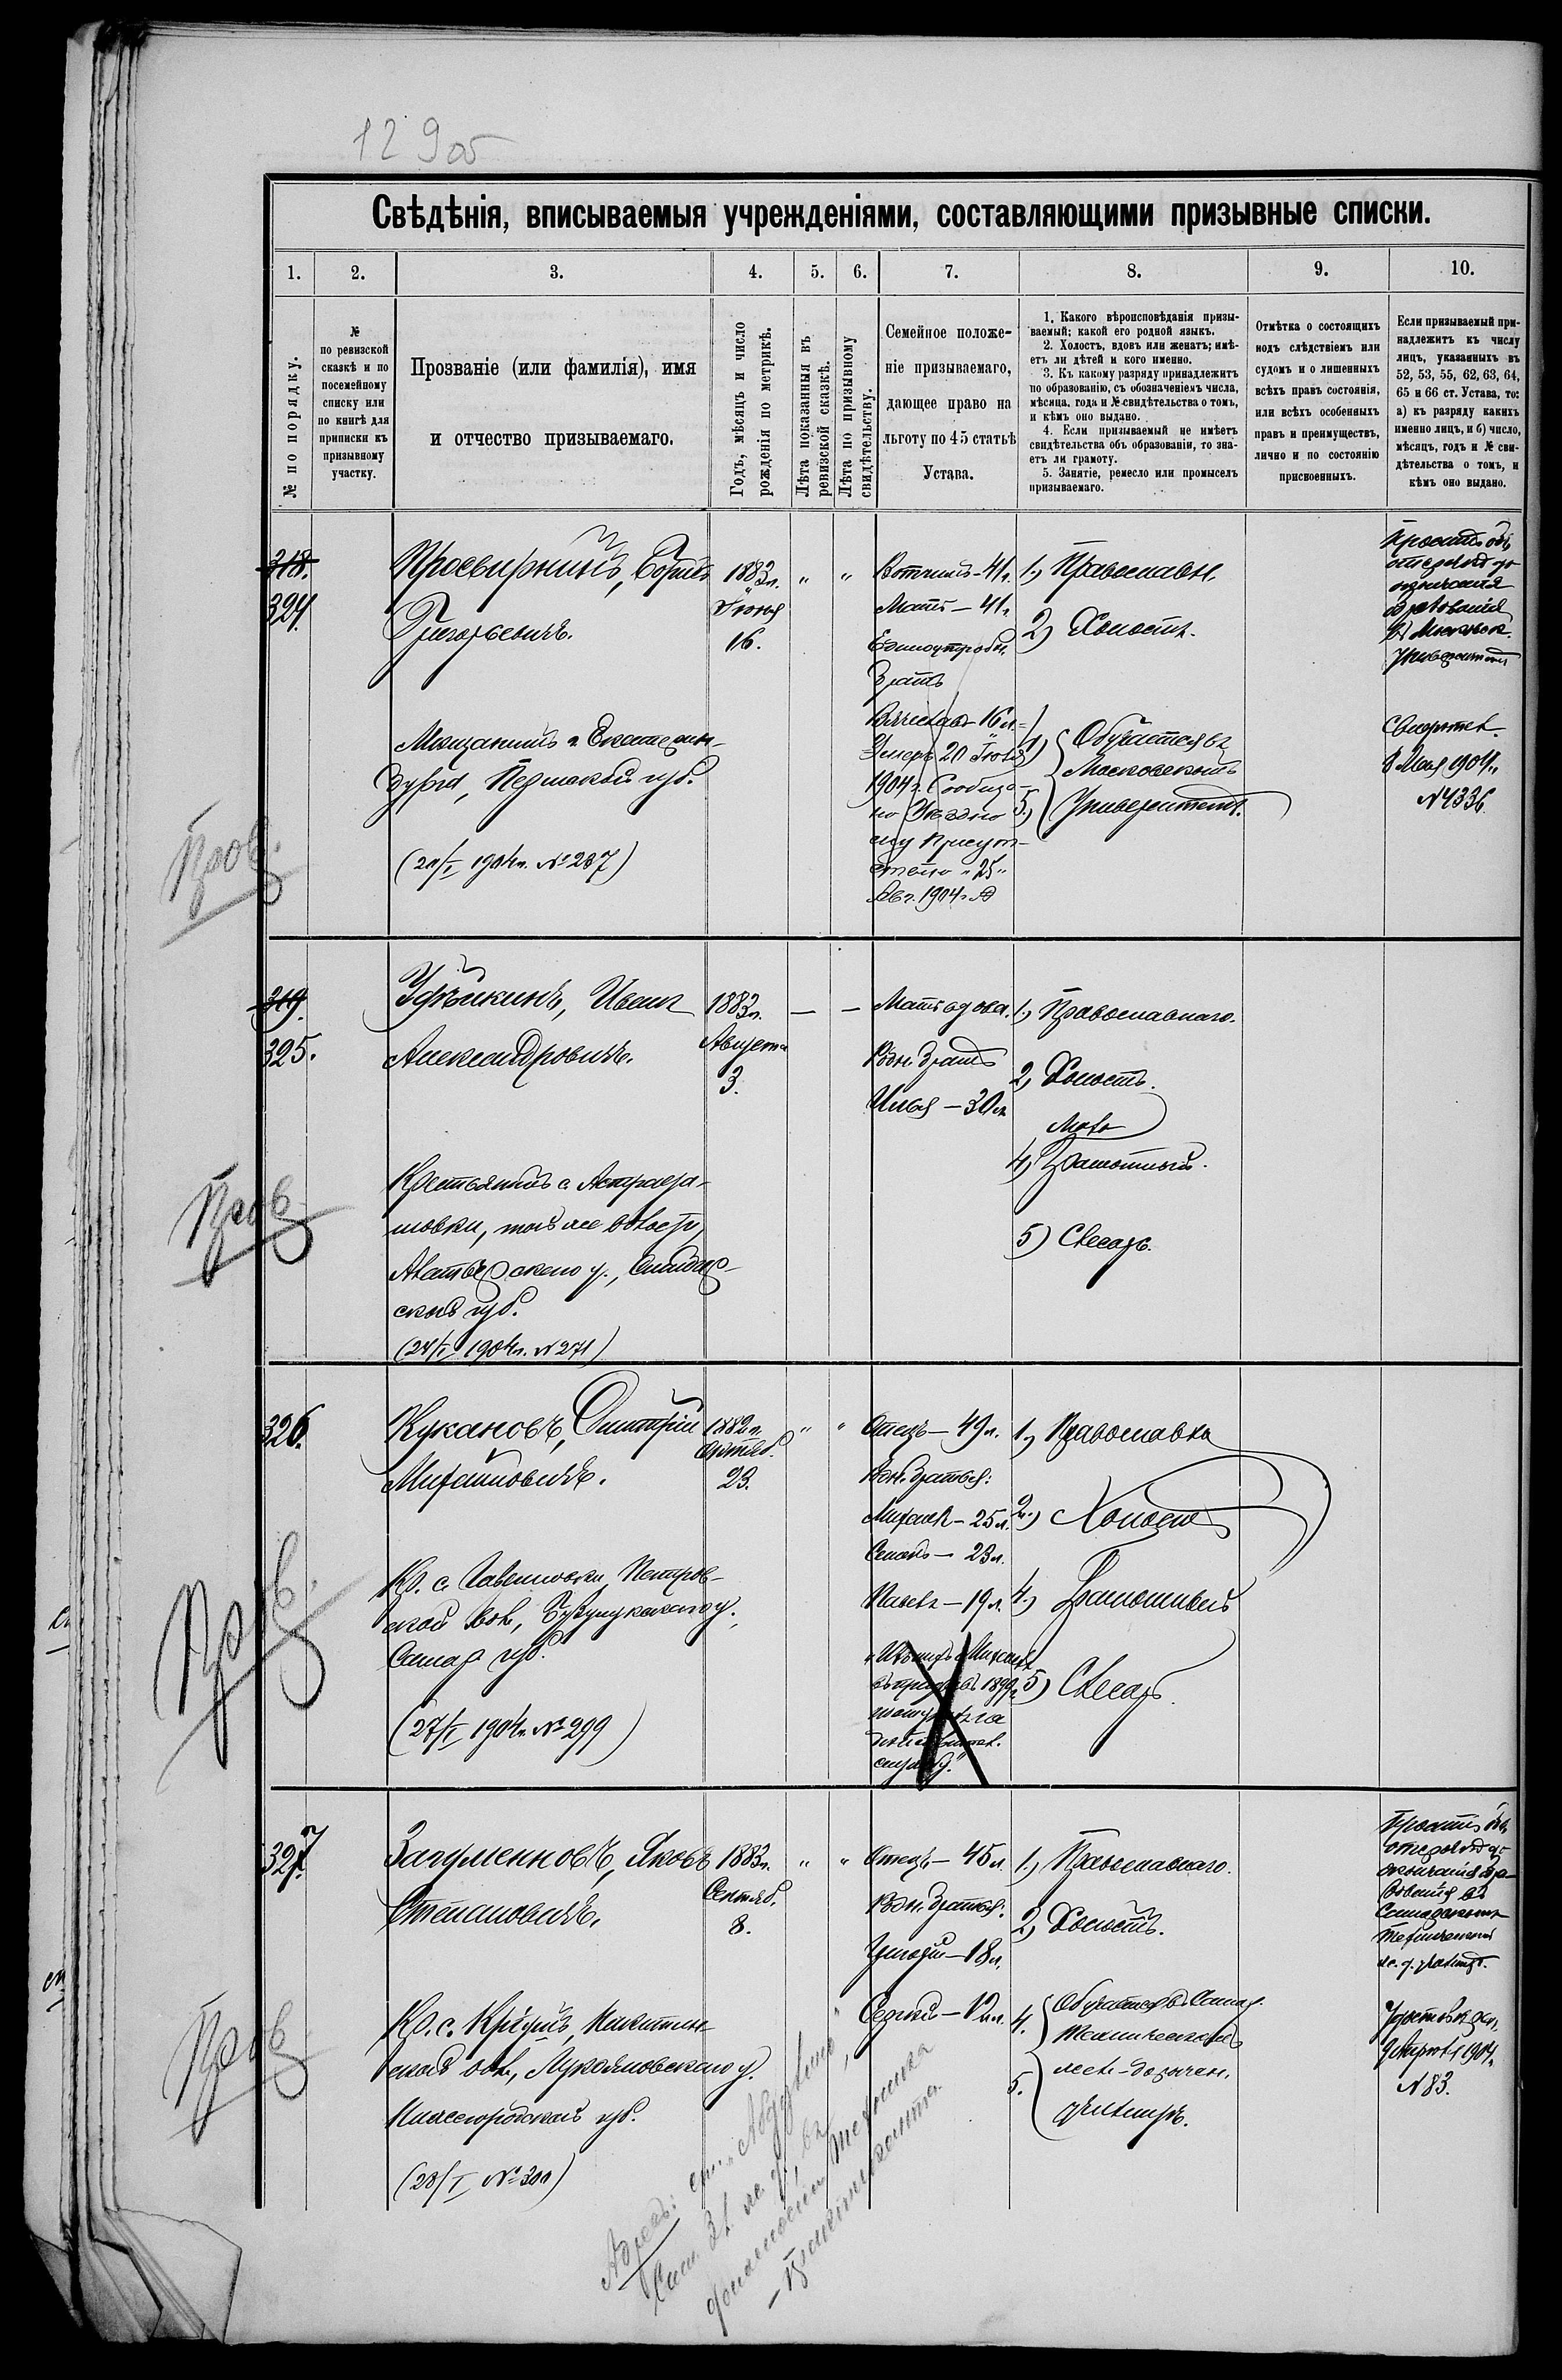 129об
Свѣдѣнія, вписываемыя учрежденіями, составляющими призывные списки.
1. 2. 3. 4. 5. 6. 7. 8. 9. 10.
№ по порядку.
№
по ревизской
сказкѣ и по
посемейному
списку или
по книгѣ для
приписки къ
призывному
участку.
Прозваніе (или фамилія), имя
и отчество призываемаго.
Годъ, мѣсяцъ и число
рожденія по метрикѣ.
Лѣта показанныя въ
ревизской сказкѣ.
Лѣта по призывному
свидѣтельству.
Семейное положе-
ніе призываемаго,
дающее право на
льготу по 45 статьѣ
Устава.
1. Какого вѣроисповѣданія призы-
ваемый; какой его родной языкъ.
2. Холостъ, вдовъ или женатъ; имѣ-
етъ ли дѣтей и кого именно.
3. Къ какому разряду принадлежитъ
по образованію, съ обозначеніемъ числа,
мѣсяца, года и № свидѣтельства о томъ,
и кѣмъ оно выдано.
4. Если призываемый не имѣетъ
свидѣтельства объ образованіи, то зна-
етъ ли грамоту.
5. Занятіе, ремесло или промыселъ
призываемаго.
Отмѣтка о состоящихъ
подъ слѣдствіемъ или
судомъ и о лишенныхъ
всѣхъ правъ состоянія,
или всѣхъ особенныхъ
правъ и преимуществъ,
лично и по состоянію
присвоенныхъ.
Если призываемый при-
надлежитъ къ числу
лицъ, указанныхъ въ
52, 53, 55, 62, 63, 64,
65 и 66 ст. Устава, то:
а) къ разряду какихъ
именно лицъ, и б) число,
мѣсяцъ, годъ и № сви-
дѣтельства о томъ, и
кѣмъ оно выдано.
318.
324.
Пров.
Просвирнинъ, Борисъ
Григорьевичъ.
Мѣщанинъ г. Екатерин-
бурга, Пермской губ.
(21/I 1904г. № 237)
1883г.
Іюня
16.
" "
Вотчимъ - 41 г.
Мать - 41 г.
Единоутробн.
братъ
Вячеславъ - 16 л.
Умеръ 20 Іюля
1904 г. Сообще-
но Уѣздно
му Присут-
ствію "25"
Авг. 1904 г.
1.) Православн.
2) Холостъ.
4) Обучается въ
Московскомъ
5.) Университетѣ.
Просить объ
отсрочкѣ до
окончанія
образованія
въ Москов.
Университетѣ
Свидѣтел.
8 Мая 1904 г.
№ 4336
319.
325.
Пров
Ивани
Александровичъ.
Крестьянинъ с. Астрада-
мовки, той же волости,
Алатырскаго у., Симбир-
ской губ.
(24/I 1904г. № 271)
1883г.
Августа
3.
— —
Мать вдова.
Родн. братъ
Илья - 30 л.
1.) Православнаго.
2) Холостъ.
4) Грамотный.
5) Слесарь.
326.
Пров.
Кукановъ, Димитрій
Михайловичъ.
Кр. с. Петров-
ской вол., Бузулукскаго у.,
Самар. губ.
(27/I 1904г. № 299)
1882г.
Октяб.
23.
" "
Отецъ - 49 л.
Родн. братья:
Михаил - 25 л.
Семенъ - 23 л.
Павелъ - 19 л.
1.) Православн.
2.) Холостъ
4.) Грамотный
5) Слесарь.
327.
Пров
Загуменновъ, Яковъ
Степановичъ.
Кр. с. Никитин-
ской вол., Лукояновскаго у.
Нижегородской губ.
(28/I № 300)
1883г.
Сентяб.
8.
" "
Отецъ - 45 л.
Родн. братья:
Григорій - 18 л.
Сергѣй - 12 л.
1.) Православнаго.
2) Холостъ.
4. Обучается въ Самар.
Техническомъ
5. жел.-дорожн.
училищѣ.
Просить объ
отсрочкѣ до
окончанія обра-
зованія въ
Самарскомъ
Техническомъ
ж. д. училищѣ.
Удостовѣрен.
Апрѣля 1904 г.
№ 83.
Адресъ: ст. "Абдулино",
Сам. Зл. ж. д., въ
должности техника
- практиканта